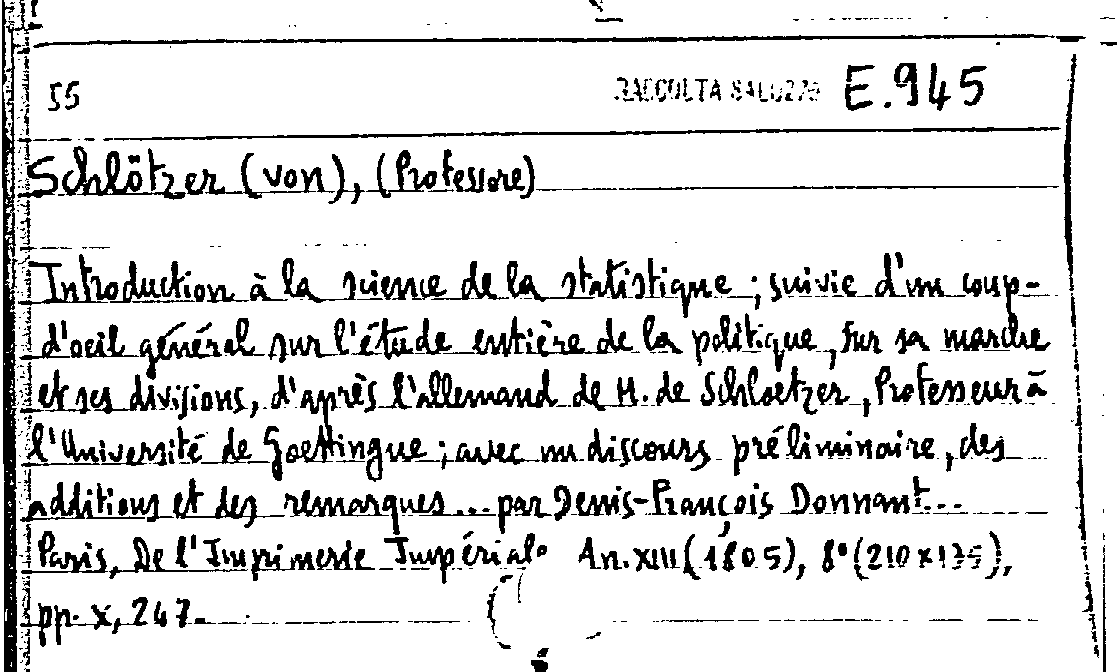 55 RACCOLTA SALUZZO E.945
Schlötzer (von), (Professore)
Introduction à la science de la statistique ; suivie d'un coup-
d'oeil général sur l'étude entière de la politique, sur sa marche
et ses divisions, d'après l'allemand de M. de Schloetzer, Professeur à
l'Université de Goettingue ; avec un discours préliminaire, des
additions et des remarques... par Denis-François Donnant...
Paris, De l'Imprimerie Impériale An. XIII (1805), 8° (210x135),
pp. X, 247.